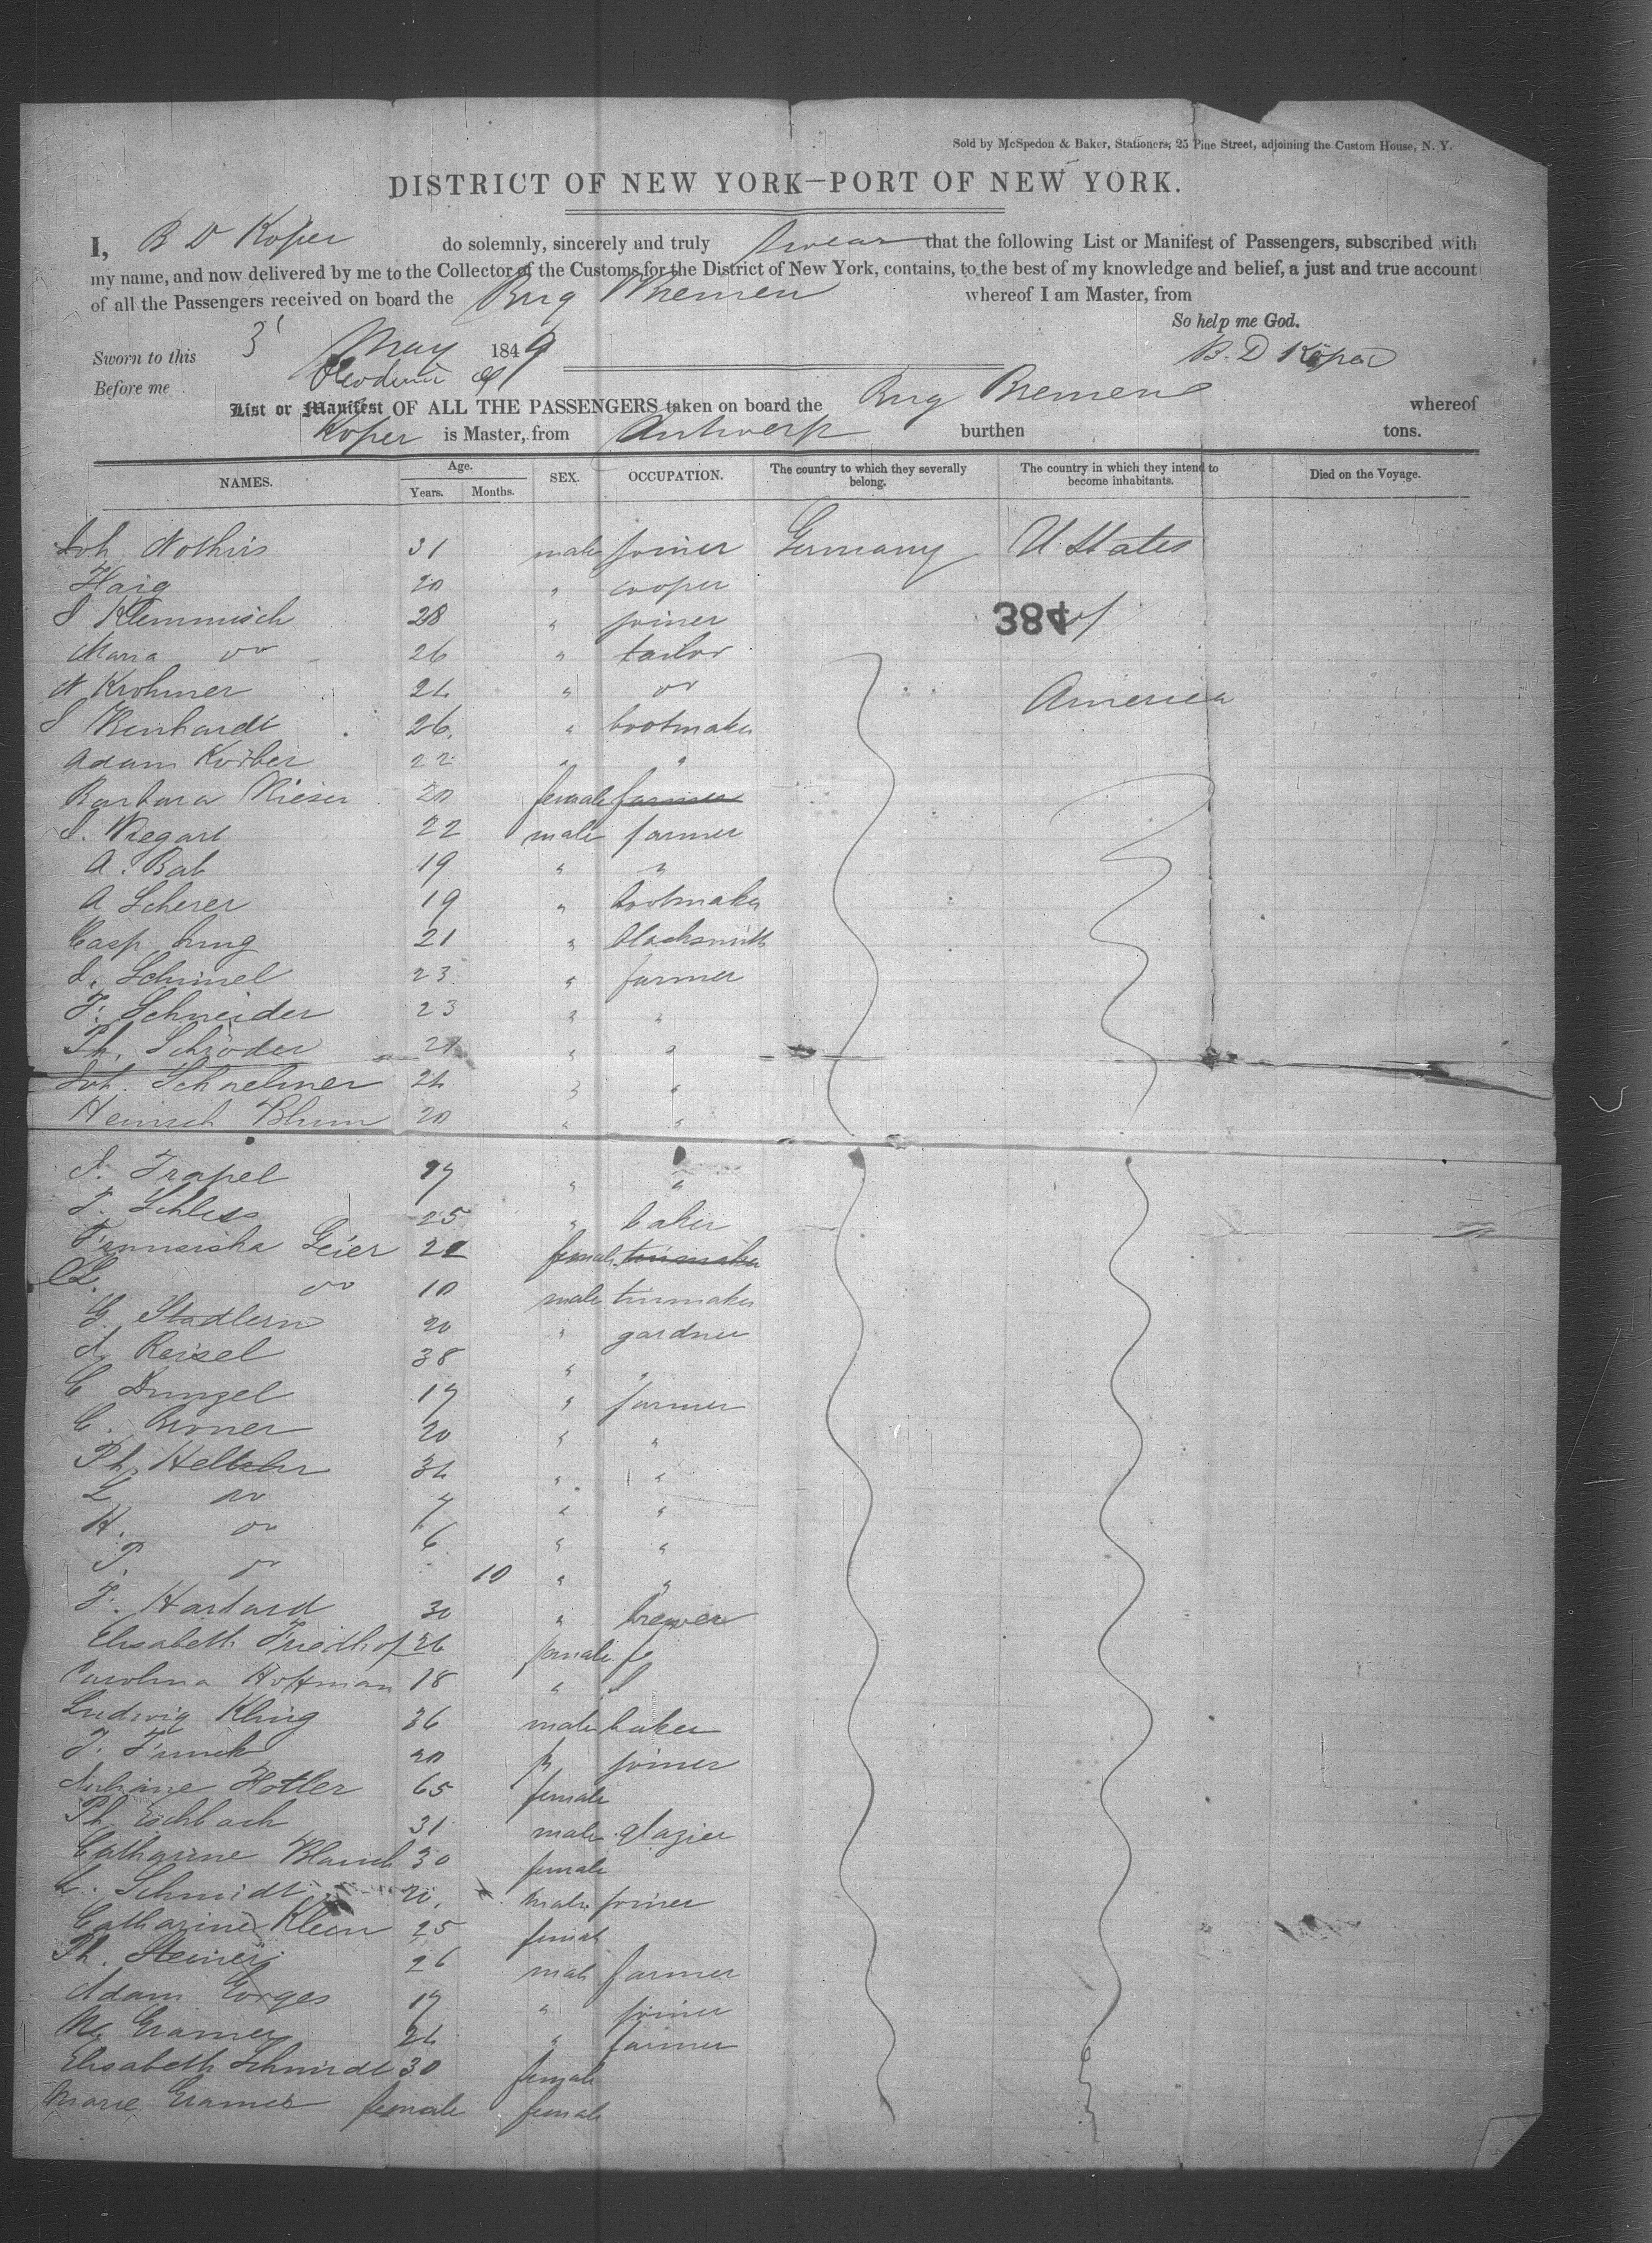 Sold by McSpedon & Baker, Stationers, 25 Pine Street, adjoining the Custom House, N. Y.
DISTRICT OF NEW YORK—PORT OF NEW YORK.
I, B D Koper do solemnly, sincerely and truly swear that the following List or Manifest of Passengers, subscribed with
my name, and now delivered by me to the Collector of the Customs for the District of New York, contains, to the best of my knowledge and belief, a just and true account
of all the Passengers received on board the Brig Bremen whereof I am Master, from
So help me God.
Sworn to this 3' May 1849 B. D Köper
Before me
List or Manifest OF ALL THE PASSENGERS taken on board the Brig Bremen whereof
Koper is Master, from Antwerp burthen tons.
NAMES. Age. Years. Months. SEX. OCCUPATION. The country to which they severally belong. The country in which they intend to become inhabitants. Died on the Voyage.
Joh Nothins 31 male joiner Germany U. States
Haig 20 " cooper
J Klemmisch 28 " joiner 384
Maria do 26 " tailor
N Krohmer 24 " do America
J Renhardt 26 " bootmaker
Adam Korber 22 " "
Barbara Rieser 20 female farmer
J. Wiegart 22 male farmer
A. Bab 19 " "
A Scherer 19 " bootmaker
Casp Jung 21 " blacksmith
J. Schimel 23 " farmer
F. Schneider 23 " "
Ph. Schröder 21 " "
Joh. Schnelmer 24 " "
Heinrich Blum 20 " "
J. Trapel 17 " "
F. Schless 25 " baker
Franziska Geier 22 female tinmaker
L. do 10 male tinmaker
G. Stadlern 20 " gardner
J. Reisel 38 " "
C Dunzel 17 " farmer
C. Broner 20 " "
Ph. 34 " "
L do 7 " "
H. do 6 " "
P. do 10 " "
F. Hartard 30 " brewer
Elisabeth Friedhof 26 female
Carolina Hoffman 18 "
Ludwig Kling 36 male baker
J. Funck 20 joiner
Juliane Hotler 65 female
Ph. Eschbach 31 male glazier
Catharine Blauch 30 female
L. Schmidt 20 male joiner
Catharine Kleen 25 female
Ph. Steiner 26 male farmer
Adam Gorges 17 " joiner
N. Cramer 24 " farmer
Elisabeth Schmidt 30 female
Marie Cramer female female